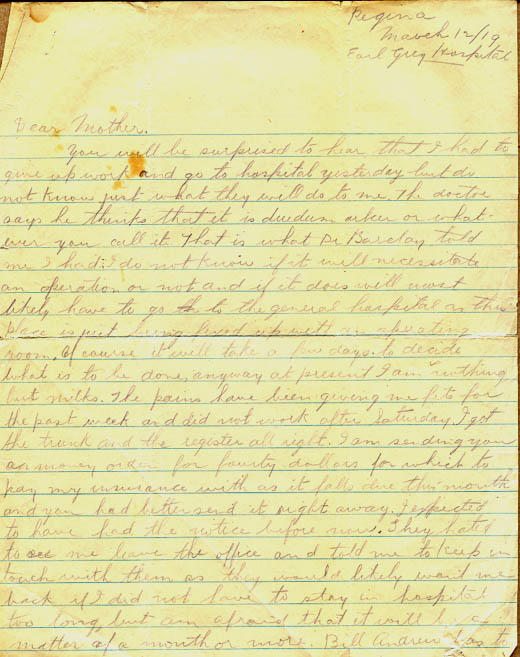 Regina
March 12/19
Earl Grey Hospital
Dear Mother.
You will be surprised to hear that I had to
give up work and go to hospital yesterday but do
not know just what they will do to me. The doctor
says he thinks that it is duedum or what-
ever you call it. That is what Dr Barclay told
me I had. I do not know if it will necessitate
an operation or not and if it does will most
likely have to go to the general hospital as this
place is just being fixed up with an operating
room. Of course it will take a few days to decide
what is to be done, anyway at present I am nothing
but milks. The pains have been giving me fits for
the past week and did not work after Saturday. I got
the trunk and the register all right. I am sending you
a money order for fourty dollars for which to
pay my insurance with as it falls due this month
and you had better send it right away. I expected
to have had the notice before now. They hated
to see me leave the office and told me to keep in
touch with them as they would likely want me
back if I did not have to stay in hospital
too long, but am afraid that it will be a
matter of a month or more. Bill Andrew has to